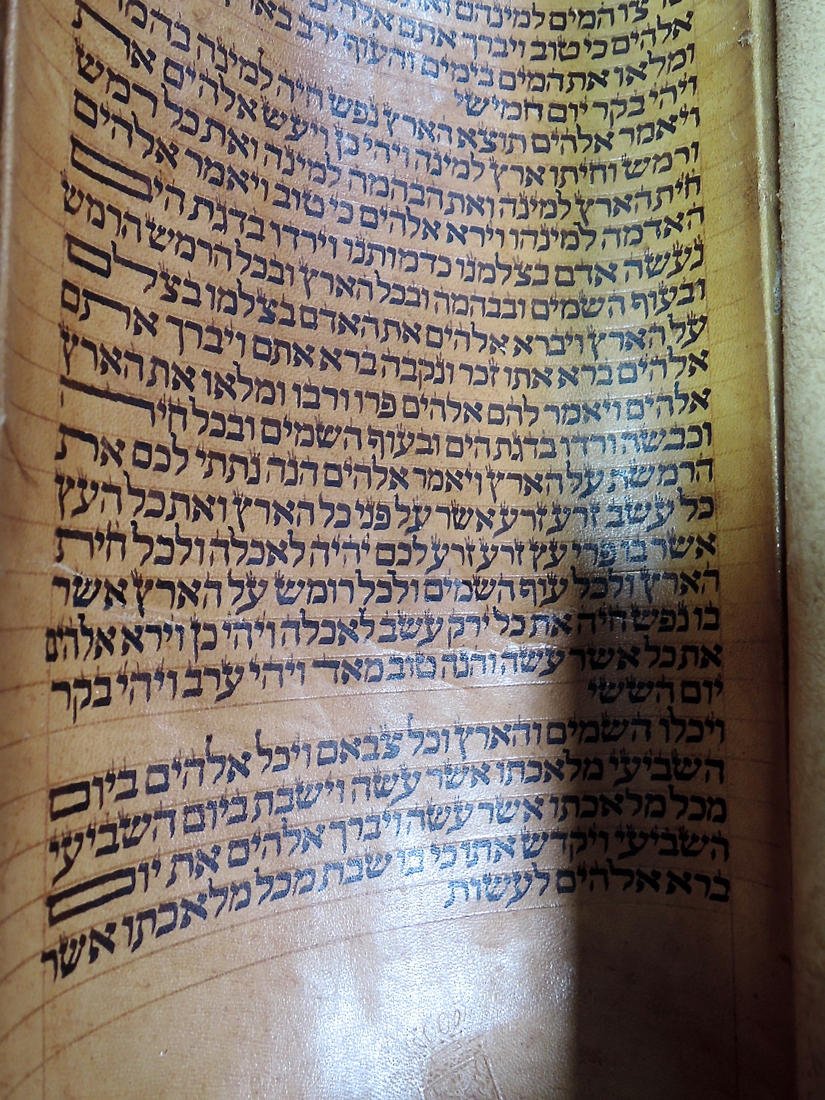 המים למינהם
אלהים כי טוב ויברך אתם אלהים
ומלאו את המים בימים והעוף ירב בארץ
ויהי בקר יום חמישי
ויאמר אלהים תוצא הארץ נפש חיה למינה בהמה
ורמש וחיתו ארץ למינה ויהי כן ויעש אלהים את
חית הארץ למינה ואת הבהמה למינה ואת כל רמש
האדמה למינהו וירא אלהים כי טוב ויאמר אלהים
נעשה אדם בצלמנו כדמותנו וירדו בדגת הים
ובעוף השמים ובבהמה ובכל הארץ ובכל הרמש הרמש
על הארץ ויברא אלהים את האדם בצלמו בצלם
אלהים ברא אתו זכר ונקבה ברא אתם ויברך אתם
אלהים ויאמר להם אלהים פרו ורבו ומלאו את הארץ
וכבשה ורדו בדגת הים ובעוף השמים ובכל חיה
הרמשת על הארץ ויאמר אלהים הנה נתתי לכם את
כל עשב זרע זרע אשר על פני כל הארץ ואת כל העץ
אשר בו פרי עץ זרע זרע לכם יהיה לאכלה ולכל חית
הארץ ולכל עוף השמים ולכל רומש על הארץ אשר
בו נפש חיה את כל ירק עשב לאכלה ויהי כן וירא אלהים
את כל אשר עשה והנה טוב מאד ויהי ערב ויהי בקר
יום הששי
ויכלו השמים והארץ וכל צבאם ויכל אלהים ביום
השביעי מלאכתו אשר עשה וישבת ביום השביעי
מכל מלאכתו אשר עשה ויברך אלהים את יום
השביעי ויקדש אתו כי בו שבת מכל מלאכתו אשר
ברא אלהים לעשות